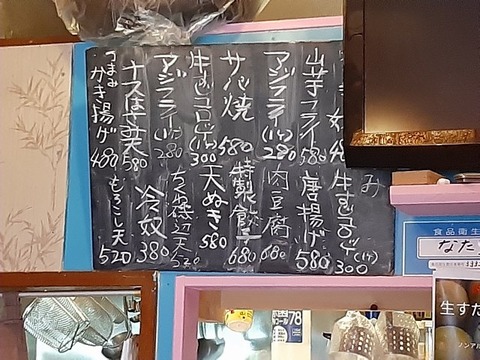 山芋フライ 580
アジフライ(1ケ) 280
サバ焼 580
牛すじコロッケ(1ケ) 300
アジフライ(1ケ) 280
ナスはさみ天 580
つまみかき揚げ 480
牛すじコロッケ(1ケ) 300
唐揚げ 580
肉豆腐 680
特製餃子 680
天ぬき 580
ちくわ磯辺天 520
冷奴 380
もろこし天 520
食品衛生
なた
生すだ
ノンアル
78